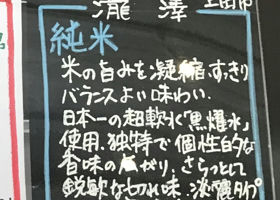 瀧澤 上田市
純米
米の旨みを凝縮、すっきり
バランスよい味わい。
日本一の超軟水「黒耀水」
使用。独特で個性的な
香味の広がり、さらっとして
鋭敏な切れ味。淡麗タイプ